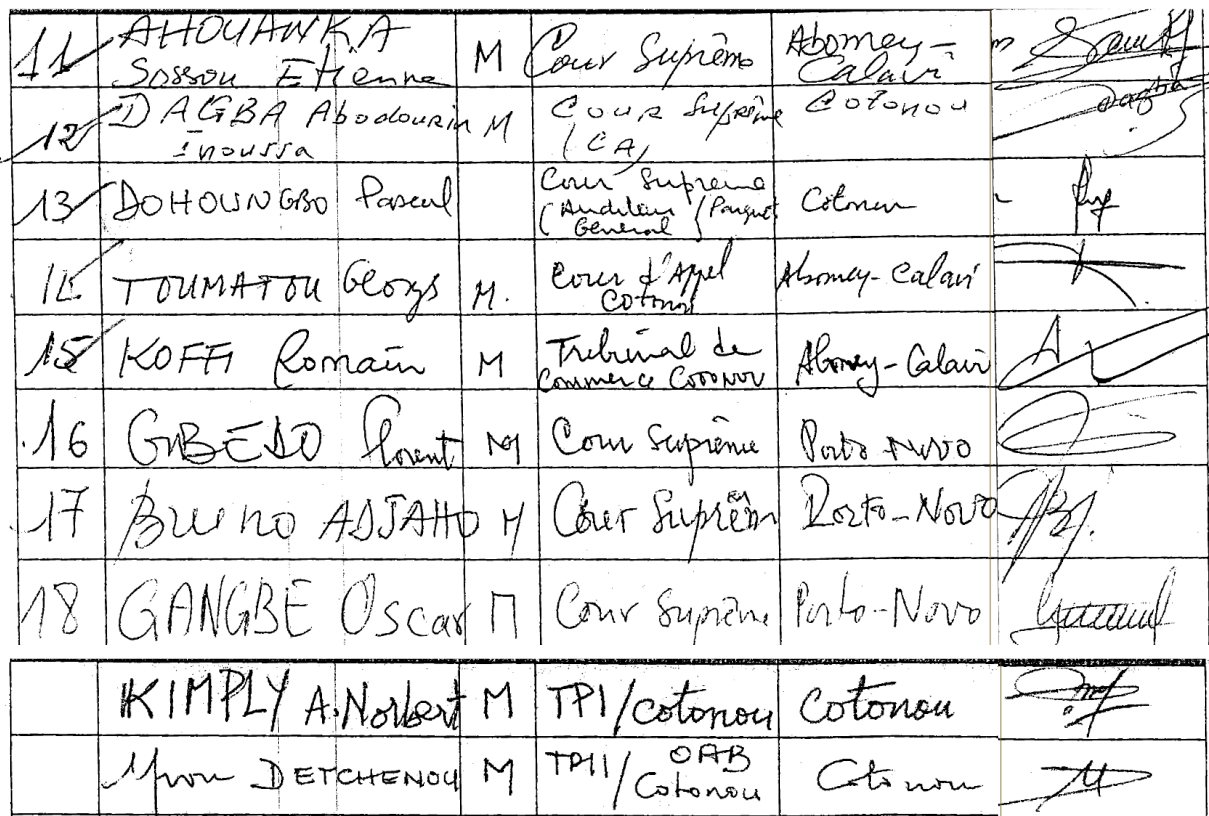 11 AHOUANKA Sossou Etienne M Cour Suprême Abomey-Calavi
12 DAGBA Abodourin Inoussa M Cour Suprême (CA) Cotonou
13 DOHOUNGBO Pascal Cour Suprême (Auditeur / Parquet Général Cotonou
14 TOUMATOU Georgs M. Cour d'Appel Cotonou Abomey-Calavi
15 KOFFI Romain M Tribunal de Commerce Cotonou Abomey-Calavi
16 GBEDO Florent M Cour Suprême Porto Novo
17 Bruno ADJAHO M Cour Suprême Porto-Novo
18 GANGBE Oscar M Cour Suprême Porto-Novo
KIMPLY A. Norbert M TPI/cotonou Cotonou
Yvon DETCHENOU M TPII/ OAB Cotonou Cotonou